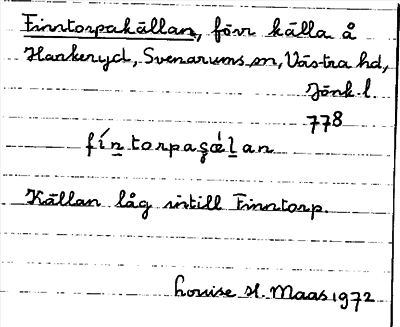 Finntorpakällan, förr källa å
Harkeryd, Svenarums sn, Västra hd,
Jönk. l.
778
fíṉtorpaʂǽḻan
Källan låg intill Finntorp.
Louise H. Maas 1972